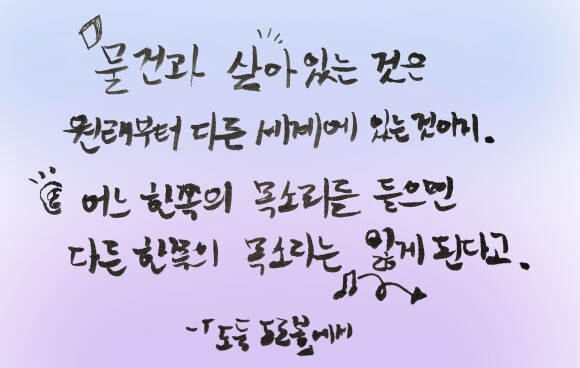 물건과 살아있는 것은
원래부터 다른 세계에 있는것이지.
어느 한쪽의 목소리를 듣으면
다른 한쪽의 목소리는 잃게 된다고.
도둑 도로봉에서